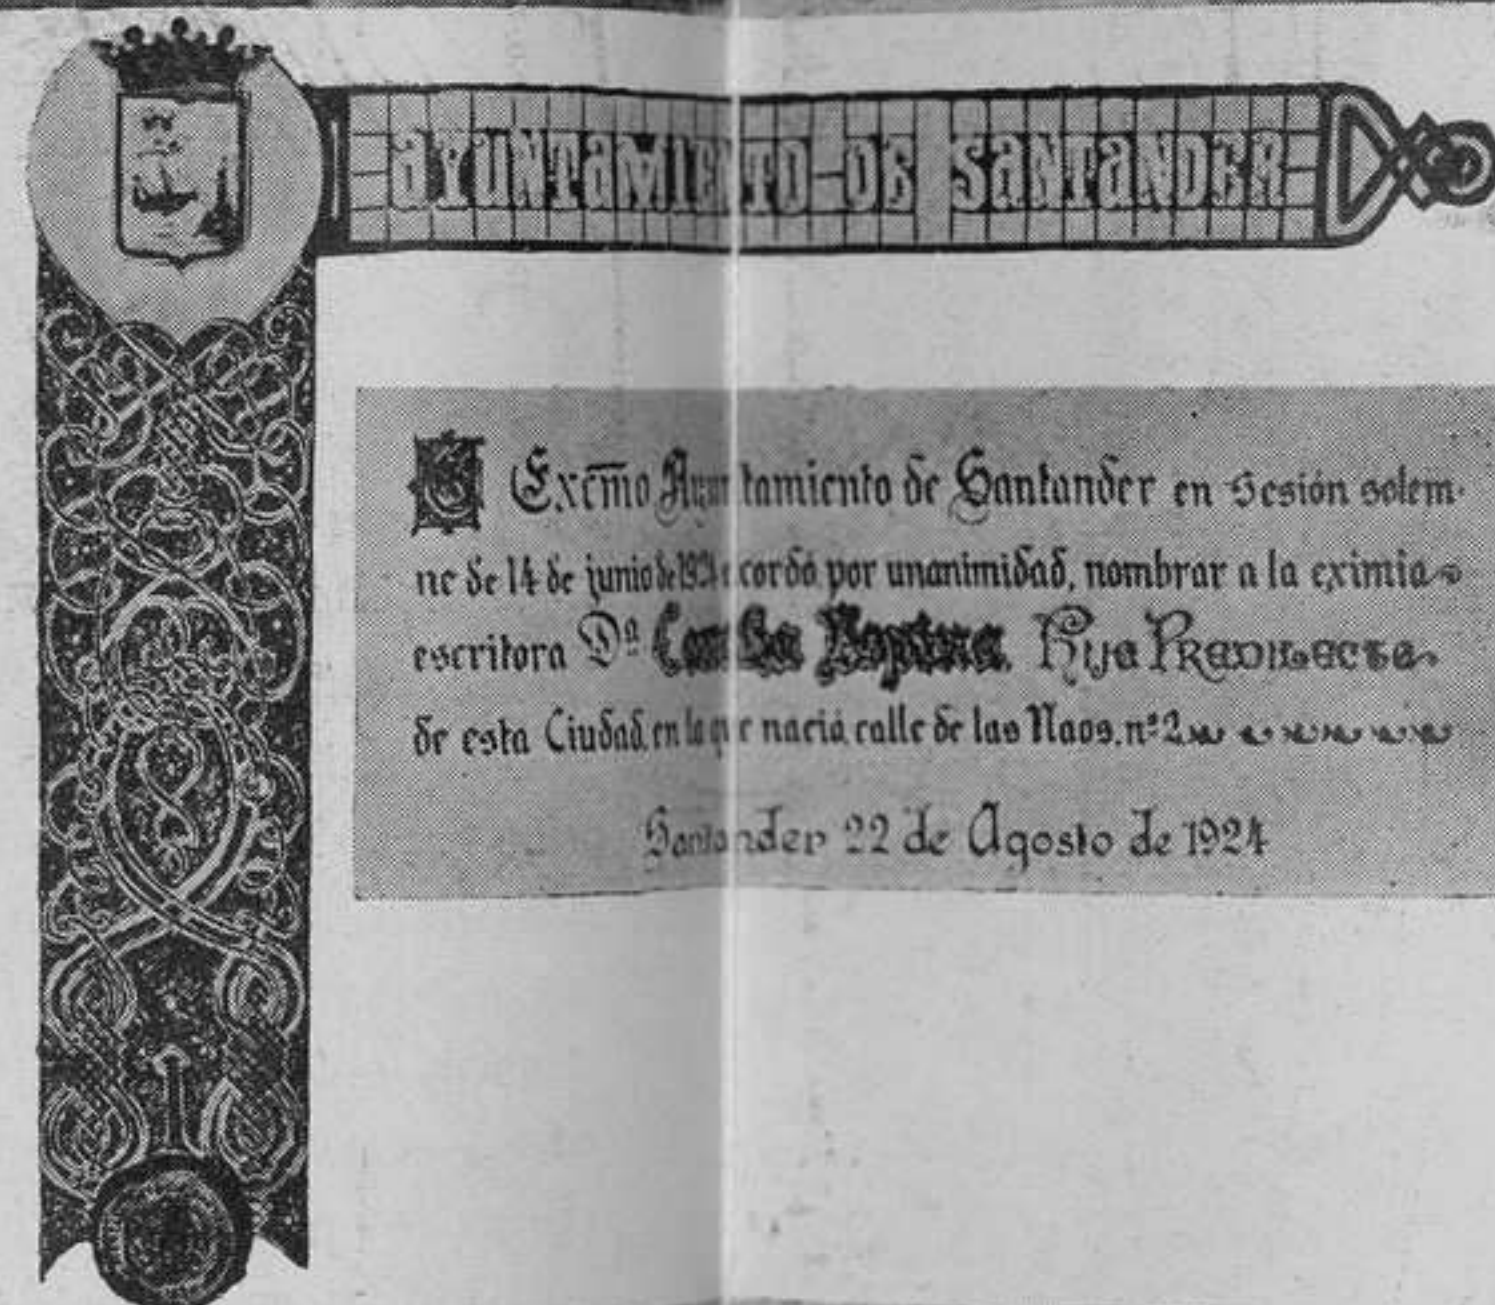 AYUNTAMIENTO DE SANTANDER
El Excmo Ayuntamiento de Santander en Sesión solem-
ne de 14 de junio de 1924 acordó por unanimidad, nombrar a la eximia
escritora Dª Concha Espina. Hija Predilecta
de esta Ciudad, en la que nació, calle de las Naos, nº 2
Santander 22 de Agosto de 1924